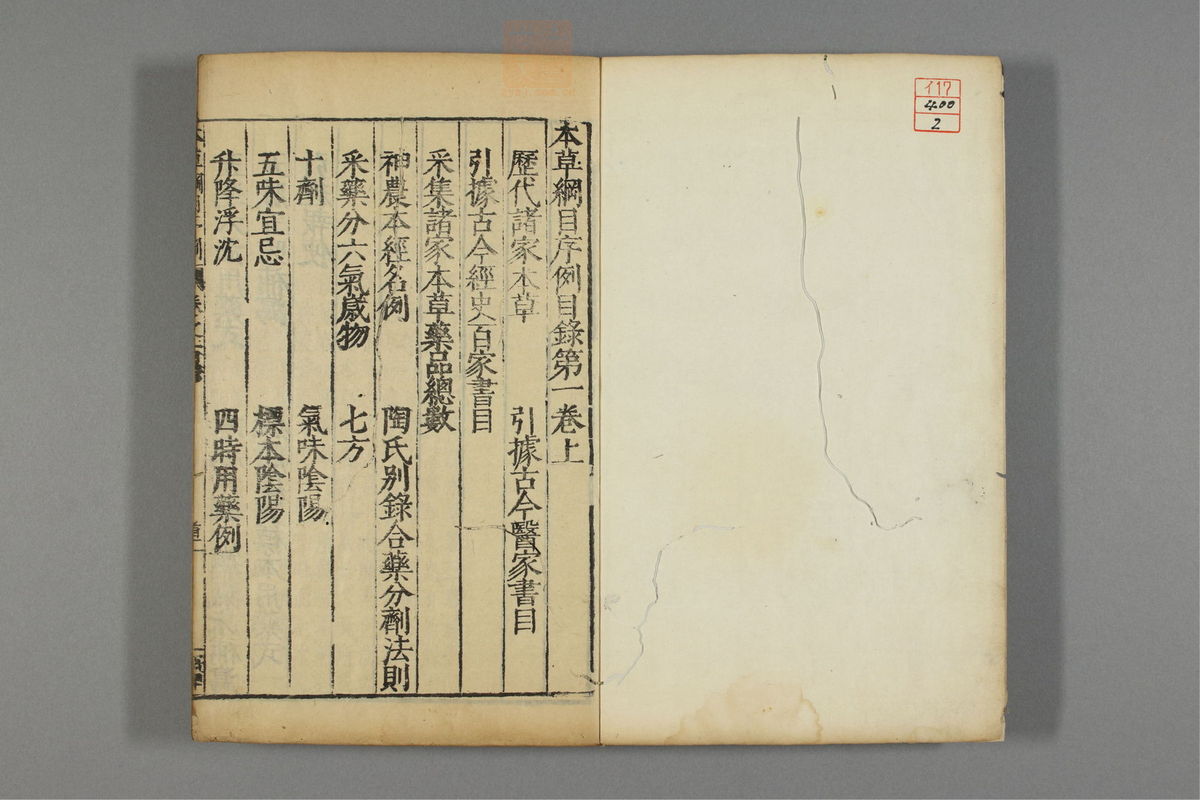 117
400
2
本草綱目序例目錄第一卷上
歷代諸家本草 引據古今醫家書目
引據古今經史百家書目
采集諸家本草藥品總數
神農本經名例 陶氏別錄合藥分劑法則
采藥分六氣歲物 七方
十劑 氣味陰陽
五味宜忌 標本陰陽
升降浮沈 四時用藥例